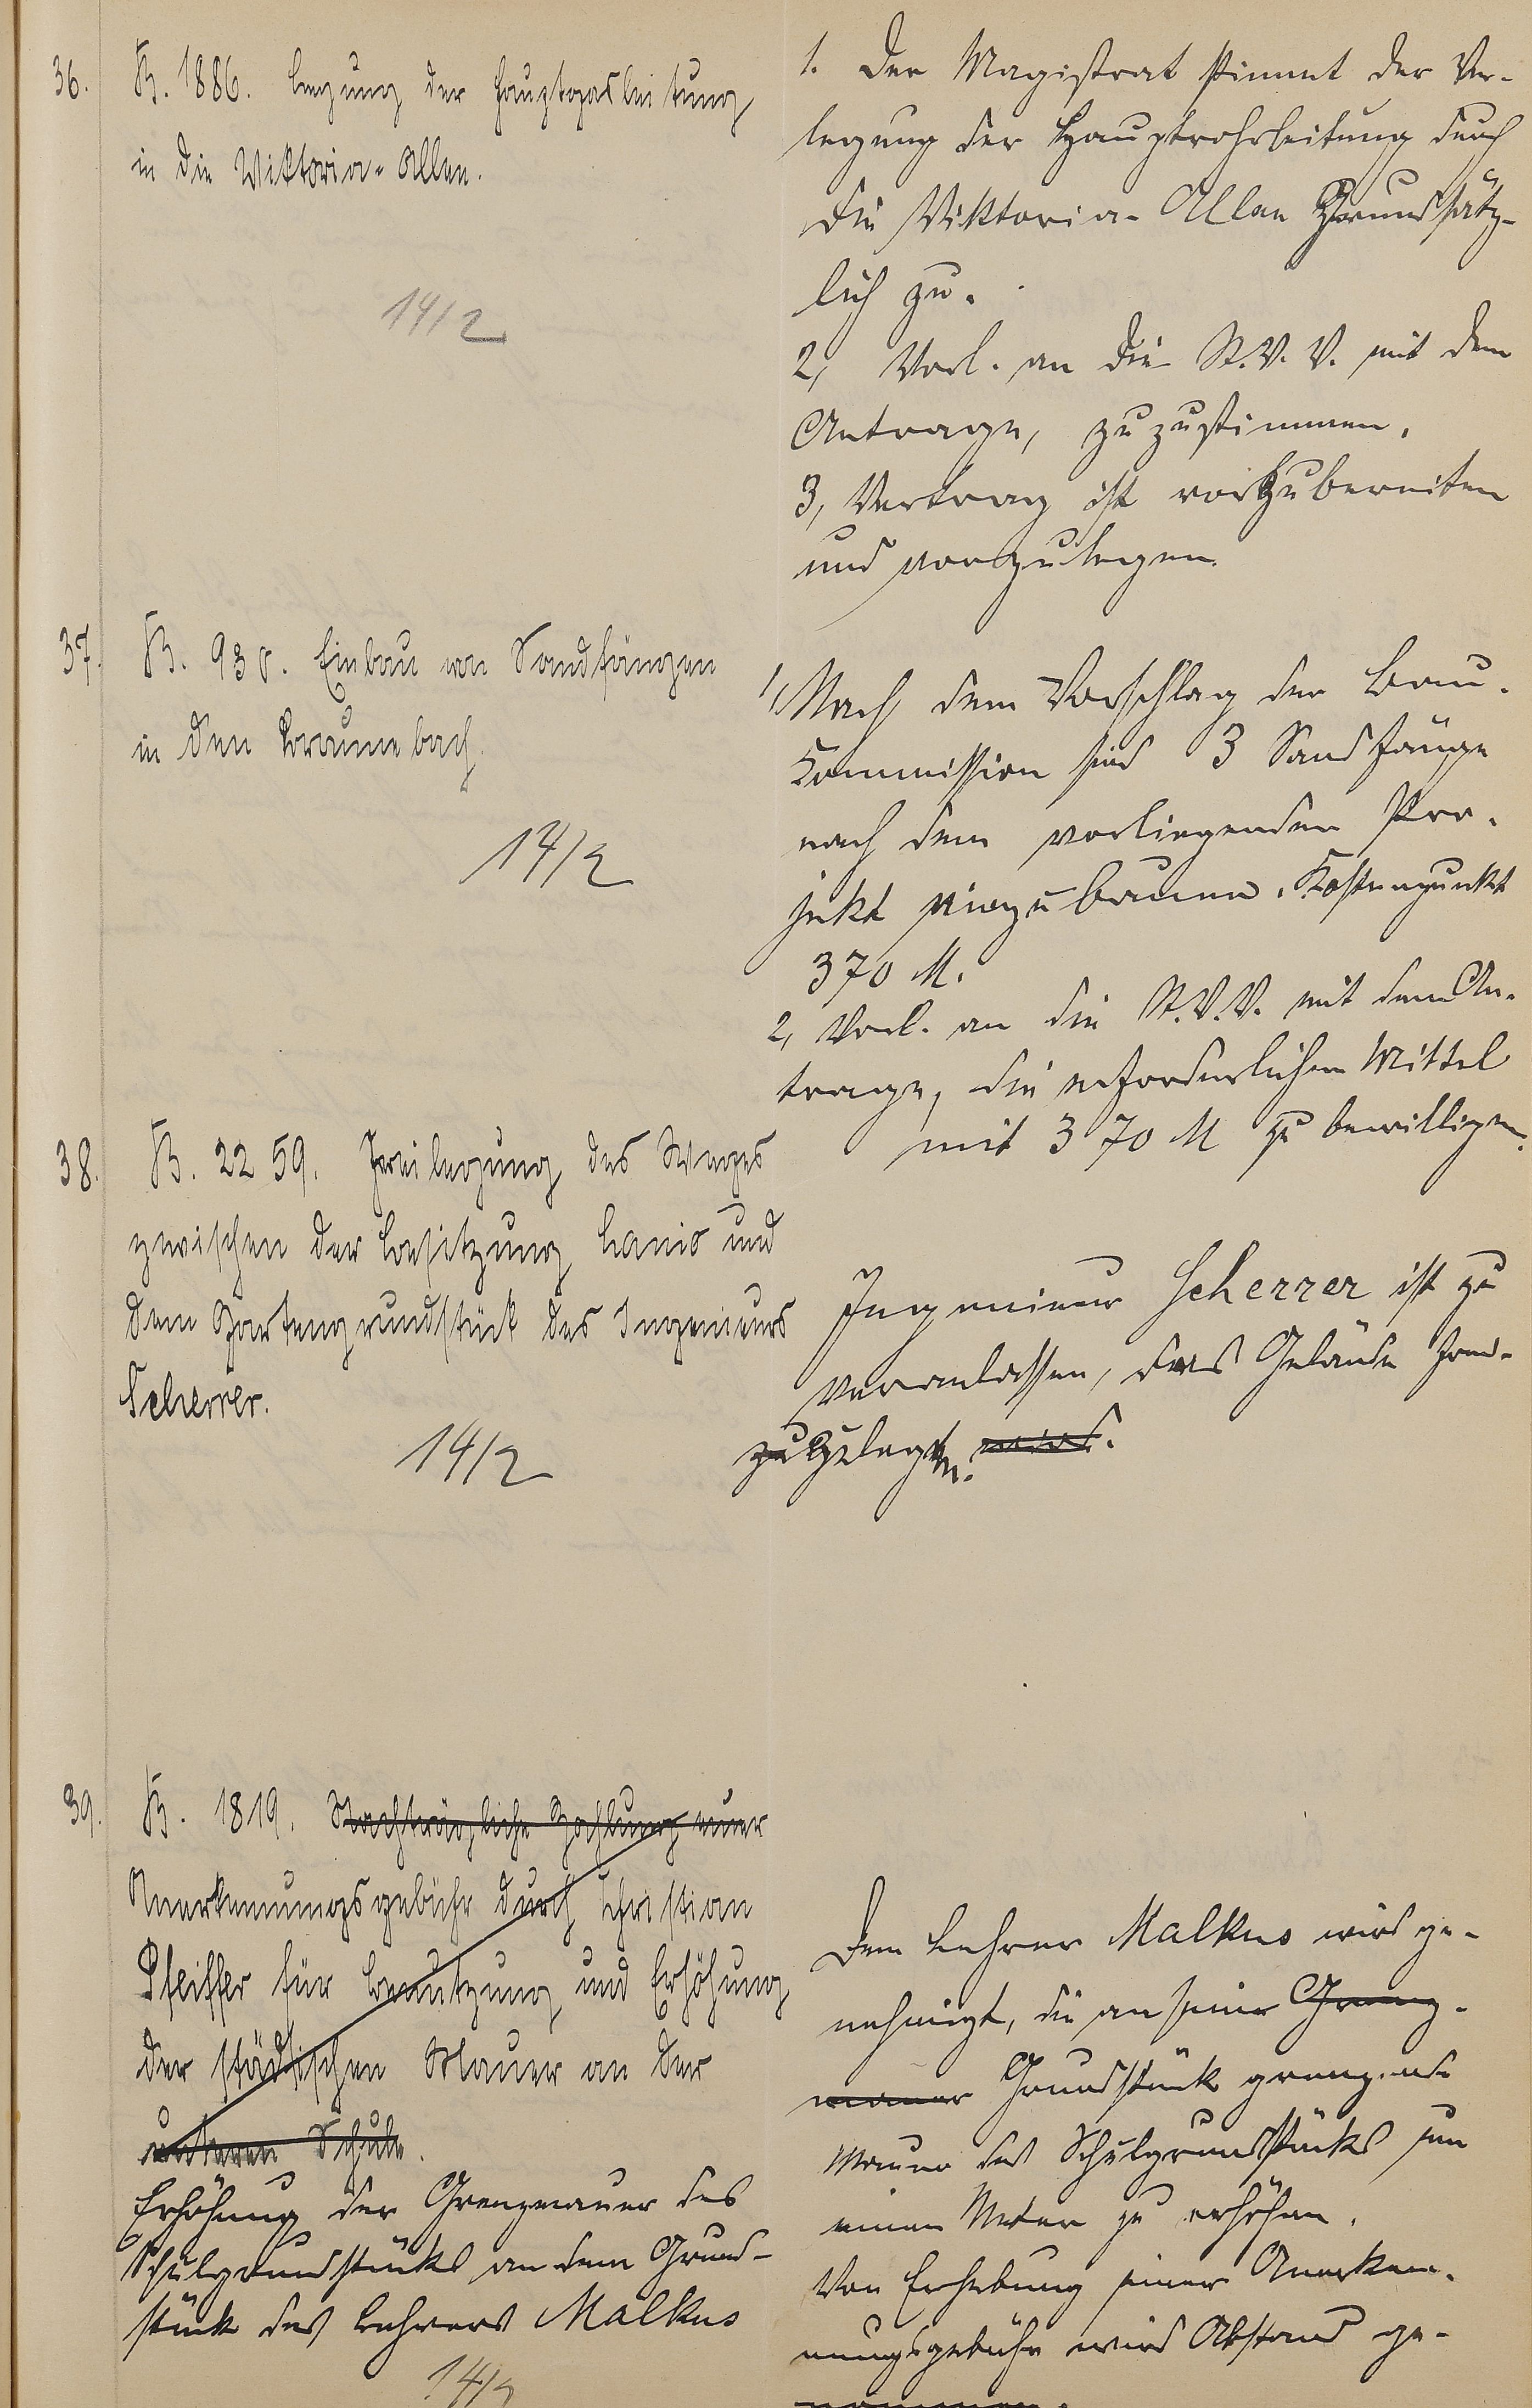 36. B. 1886. Legung der Hauptgasleitung
in die Viktoria-Allee.
14/2
1. Der Magistrat stimmt der Ver-
legung der Hauptrohrleitung durch
die Viktoria-Allee Grundsätz-
lich zu.
2, Vorl. an die St.V.V. mit dem
Antrage, zuzustimmen.
3, Vertrag ist vorzubereiten
und vorzulegen.
37. B. 930. Einbau von Sandfängen
in den Braumebach.
14/2
1, Nach dem Vorschlag der Bau-
Kommission sind 3 Sandfänge
nach dem vorliegenden Pro-
jekt einzubauen. Kostenpunkt
370 M.
2, Vorl. an die St.V.V. mit dem An-
trage, die erforderlichen Mittel
mit 370 M zu bewilligen.
38. B. 2259. Freilegung des Weges
zwischen der Besitzung Hanis und
dem Gartengrundstück des Ingenieurs
Scherrer.
14/2
Ingenieur Scherrer ist zu
veranlassen, das Gelände frei-
zulegen.
39. B. 1819. Nachträgliche Zahlung einer
Anerkennungsgebühr durch Christian
Pfeiffer für Benutzung und Erhöhung
der städtischen Mauer an der
unteren Schule.
Erhöhung der Grenzmauer des
Schulgrundstücks an dem Grund-
stück des Lehrers Malkus
14/2
Dem Lehrer Malkus wird ge-
nehmigt, die an seine Grenz-
mauer Grundstück grenzende
Mauer des Schulgrundstücks um
einen Meter zu erhöhen.
Von Erhebung einer Anerken-
nungsgebühr wird Abstand ge-
nommen.